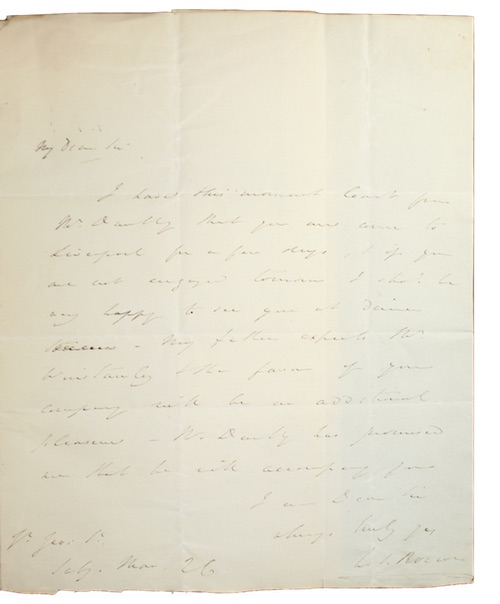 My Dear Sir
I have this moment learnt from
Mr. Danlby that you are come to
Liverpool for a few days & if you
are not engaged tomorrow I shd. be
very happy to see you at Dinner
My father expects Mr.
Winstanley & the favor of your
company will be an additional
pleasure - Mr. Danlby has promised
me that he will accompany you
I am Dear Sir
always truly yrs
Roscoe
Geo: St.
Saty. Mar. 26